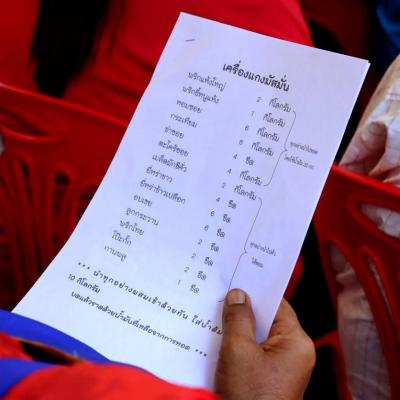 เครื่องแกงมัสมั่น
พริกแห้งใหญ่ 2 กิโลกรัม
พริกขี้หนูแห้ง 1 กิโลกรัม
หอมซอย 6 กิโลกรัม
กระเทียม 6 กิโลกรัม
ข่าซอย 4 ขีด
ตะไคร้ซอย 2 กิโลกรัม
เมล็ดผักชีคั่ว 4 ขีด
ยี่หร่าขาว 6 ขีด
ยี่หร่าข้าวเปลือก 2 ขีด
อบเชย 6 ขีด
ลูกกระวาน 2 ขีด
พริกไทย 2 ขีด
โป๊ยกั๊ก 2 ขีด
กานพลู 1 ขีด
ทุกอย่างนำไปทอด
ทุกอย่างนำไปคั่ว
ให้หอม
*** นำทุกอย่างผสมเข้าด้วยกัน ใส่น้ำ
10 กิโลกรัม
บดแล้วราดด้วยน้ำมันที่เหลือจากการทอด ***